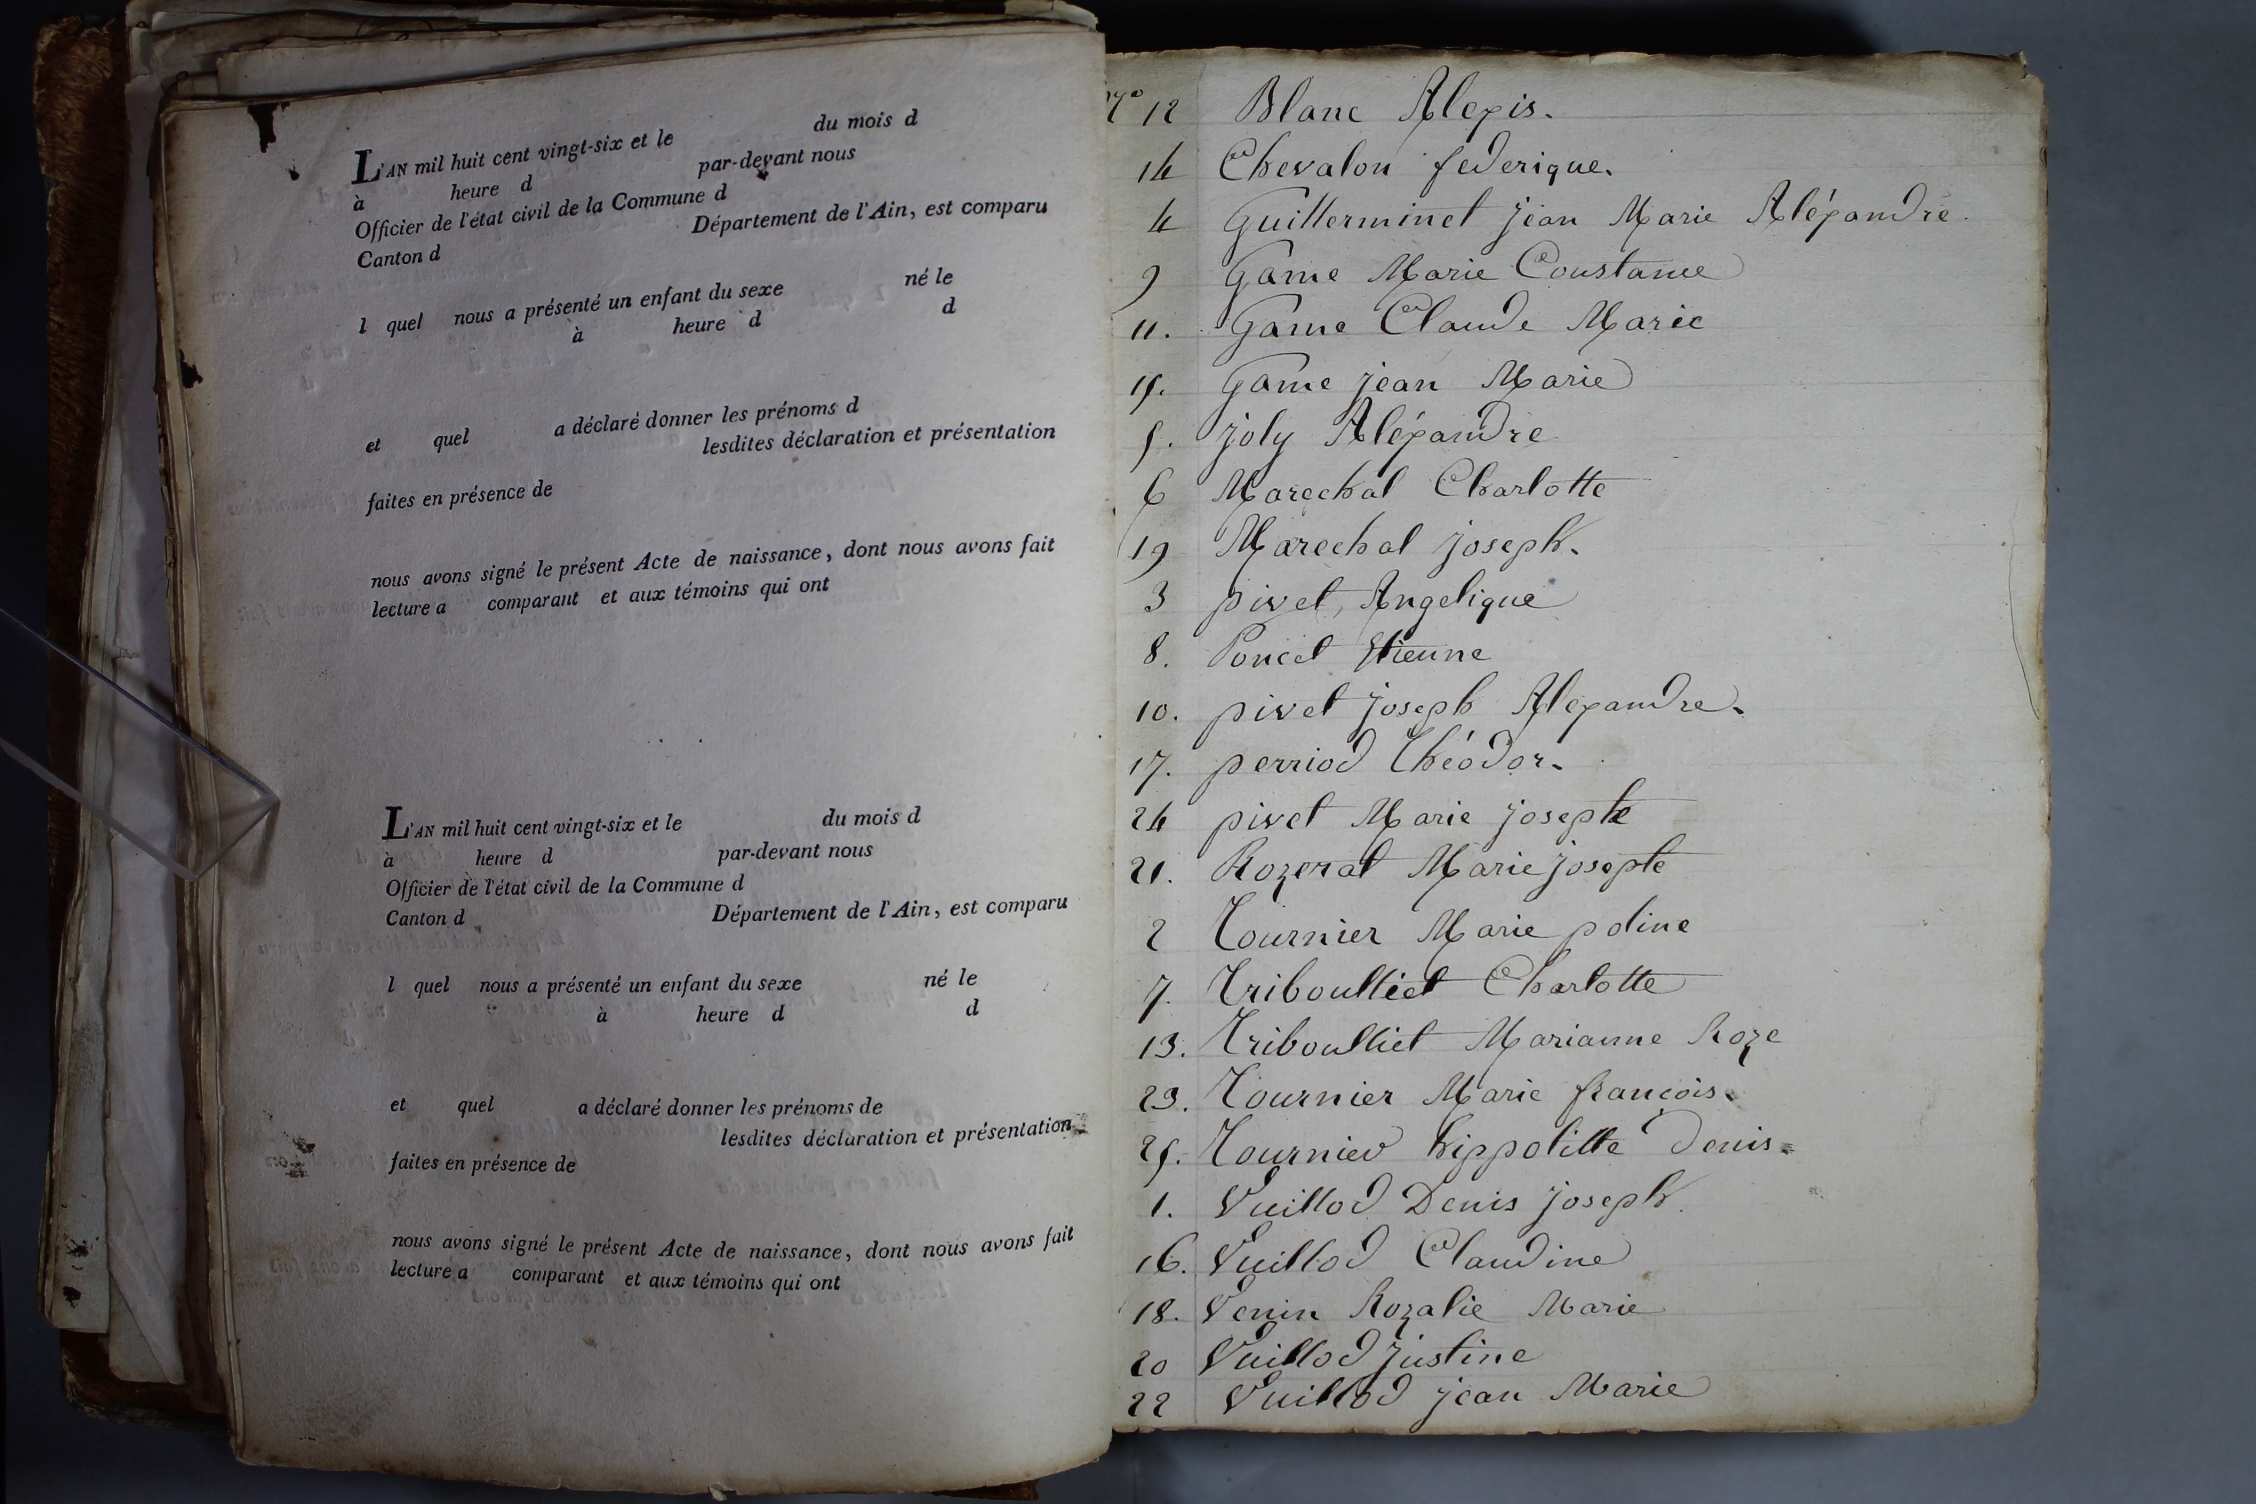 L'AN mil huit cent vingt-six et le du mois d
à heure d par-devant nous
Officier de l'état civil de la Commune d
Canton d Département de l'Ain, est comparu
l quel nous a présenté un enfant du sexe né le
à heure d d
et quel a déclaré donner les prénoms d
lesdites déclaration et présentation
faites en présence de
nous avons signé le présent Acte de naissance, dont nous avons fait
lecture a comparant et aux témoins qui ont
L'AN mil huit cent vingt-six et le du mois d
à heure d par-devant nous
Officier de l'état civil de la Commune d
Canton d Département de l'Ain, est comparu
l quel nous a présenté un enfant du sexe né le
à heure d d
et quel a déclaré donner les prénoms de
lesdites déclaration et présentation
faites en présence de
nous avons signé le présent Acte de naissance, dont nous avons fait
lecture a comparant et aux témoins qui ont
N° 12 Blanc Alexis.
14 Chevalon federique.
4 Guillerminet jean Marie Aléxandre.
9 Game Marie Constance
11. Game Claude Marie
15. Game jean Marie
5. joly Aléxandre
6 Marechal Charlotte
19 Marechal joseph.
3 pivet, Angelique
8. Poncet Etienne
10. pivet joseph Alexandre.
17. perriod Théodor.
24 pivet Marie josepte
21. Rozerat Marie josepte
2 Tournier Marie poline
7. Triboulliet Charlotte
13. Triboulliet Marianne Roze
23. Tournier Marie françois.
25. Tournier hippolitte Denis.
1. Vuillod Denis joseph.
16. Vuillod Claudine
18. Venin Rozalie Marie
20 Vuillod justine
22 Vuillod jean Marie